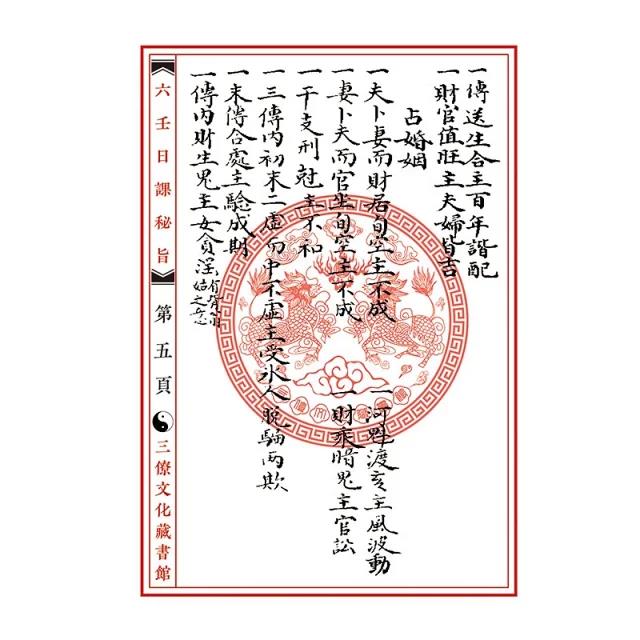 一傳送生合主百年諧配
一財官值旺主夫婦皆吉
占婚姻
一夫卜妻而財居旬空主不成
一河魁渡亥主風波動
一妻卜夫而官坐旬空主不成
一財乘暗鬼主官訟
一干支刑尅主不和
一三傳內初末二虛而中不虛主受冰人脫騙兩欺
一末傳合處主驗成期
一傳內財生鬼主女貪淫
六壬日課秘旨
第五頁
三僚文化藏書館